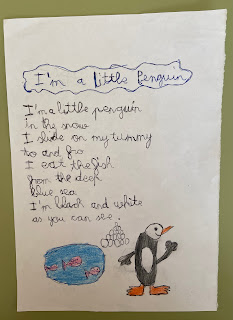 I'm a little Penguin
I'm a little penguin
in the snow
I slide on my tummy
to and fro
I eat the fish
from the deep
blue sea
I'm black and white
as you can see.